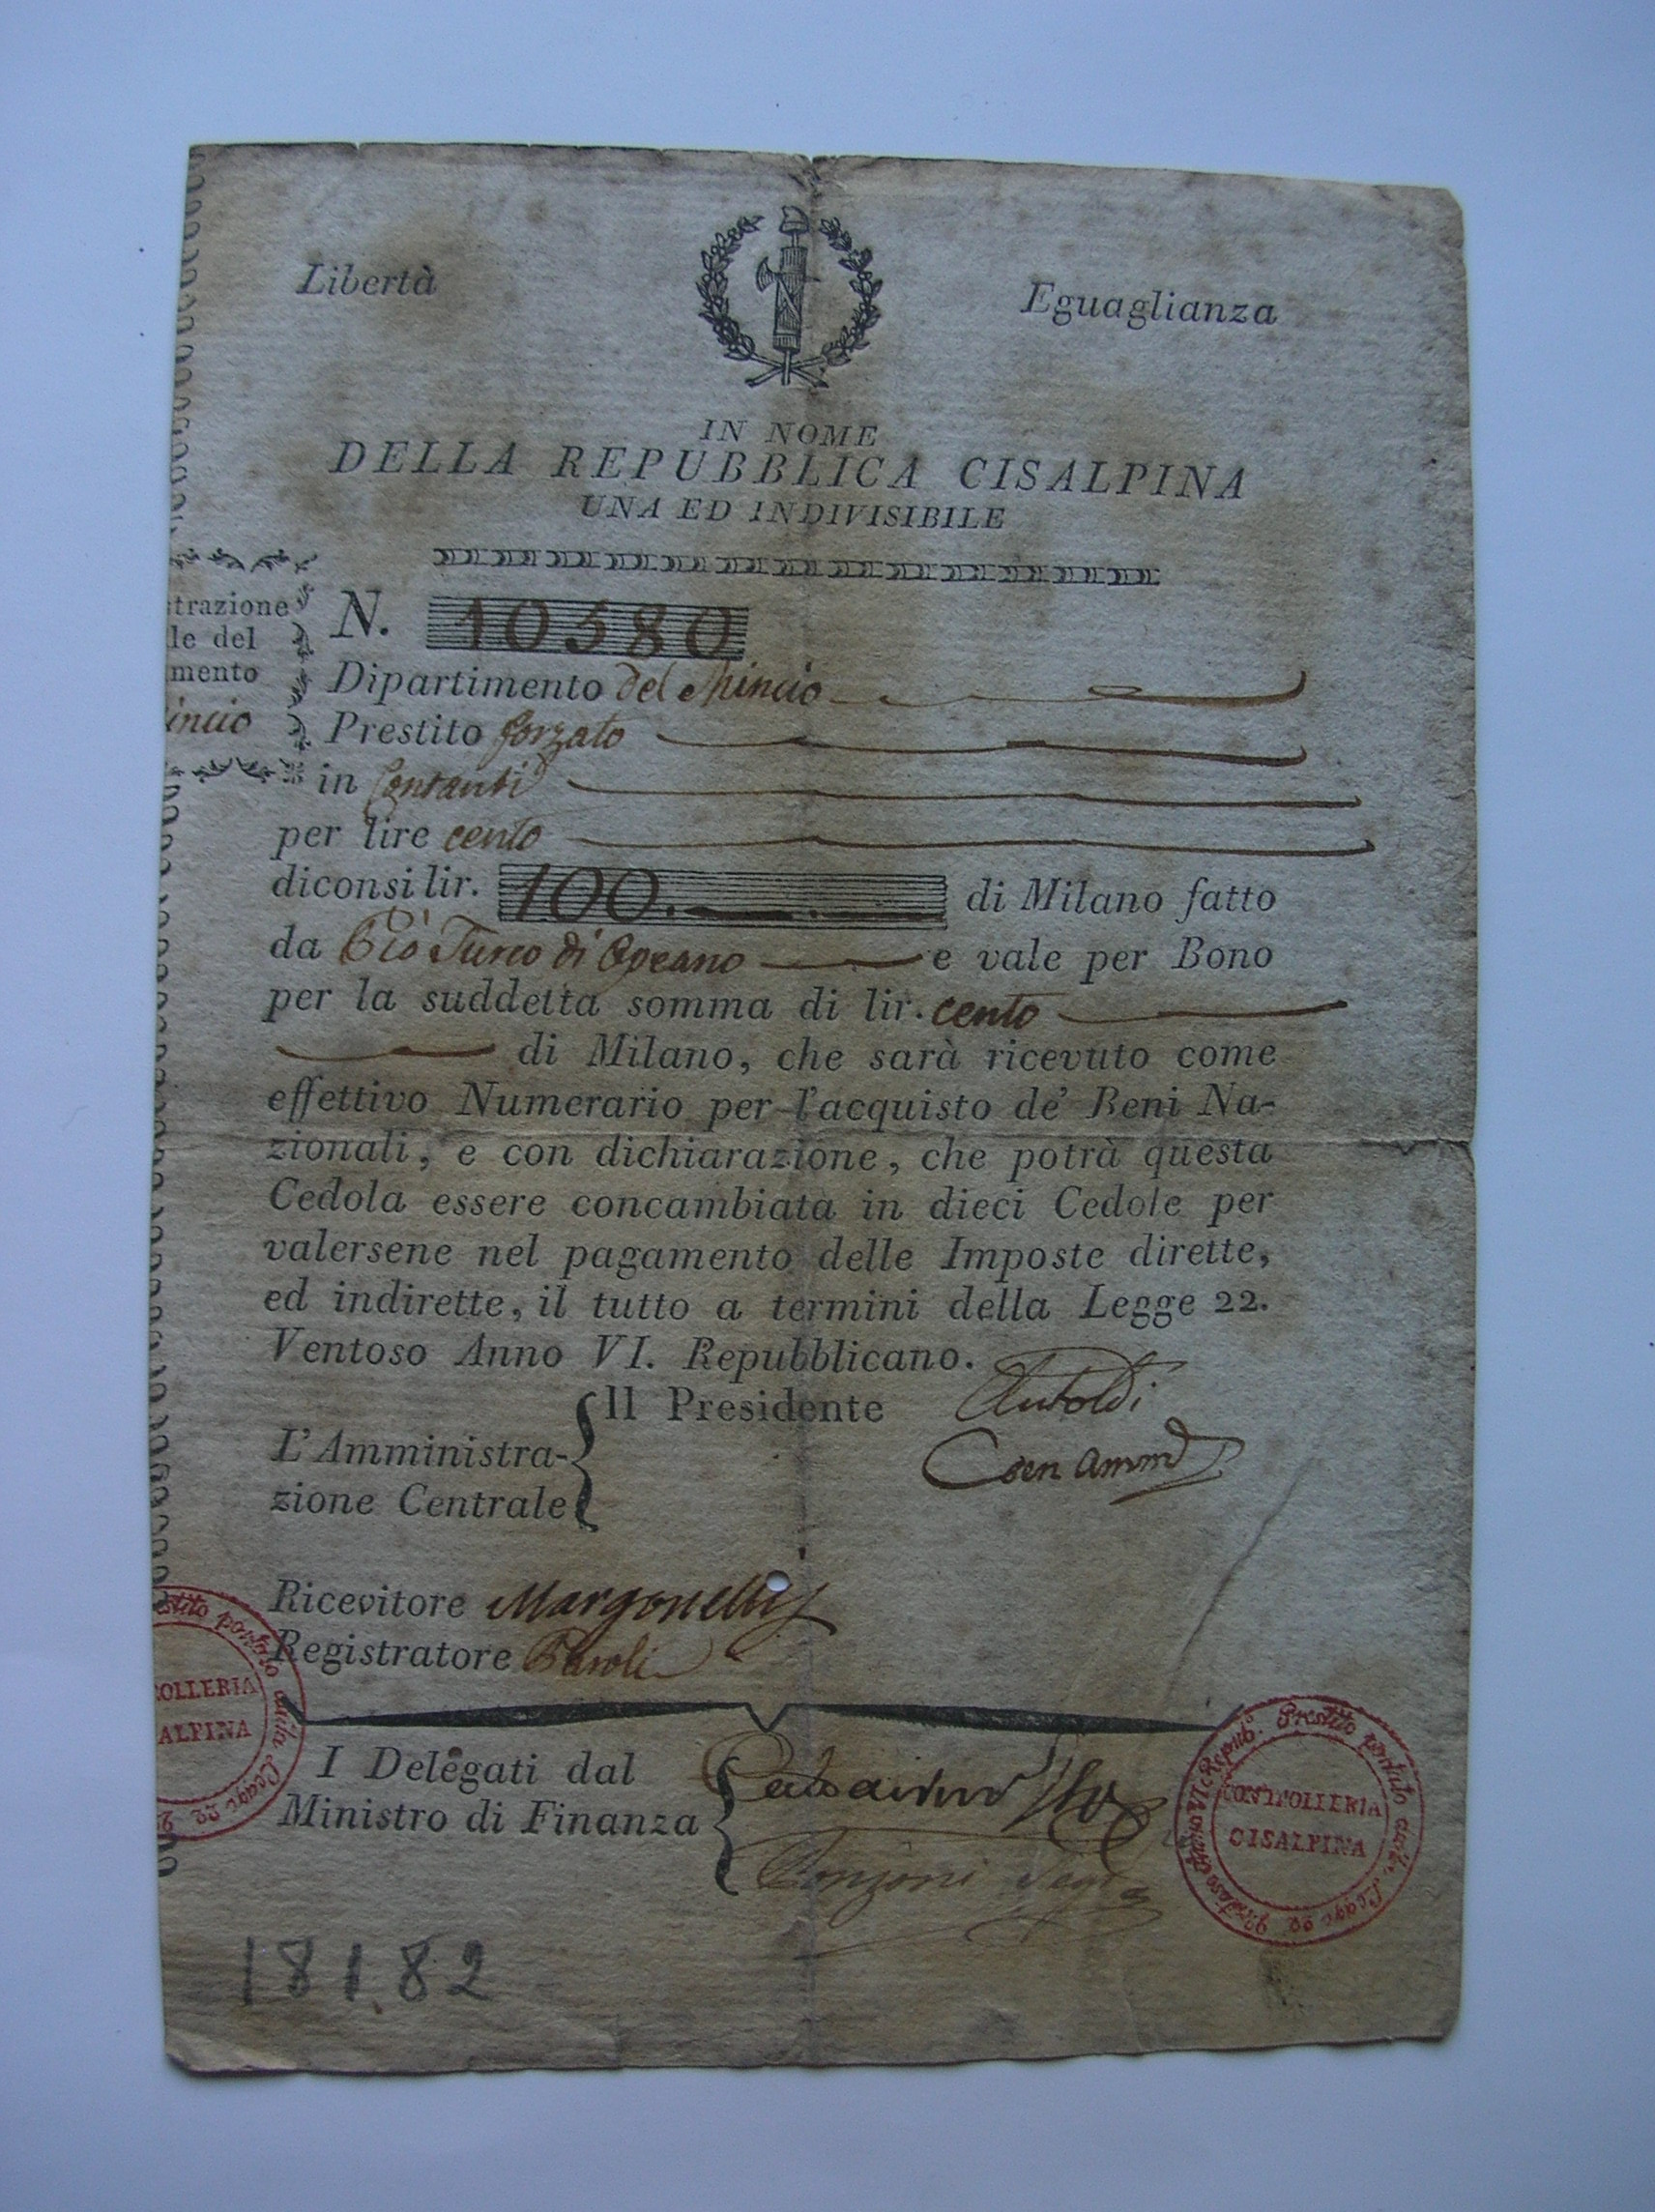 Libertà
Eguaglianza
IN NOME
DELLA REPUBBLICA CISALPINA
UNA ED INDIVISIBILE
trazione
le del
mento
incio
N. 10580
Dipartimento del Mincio
Prestito forzato
in Contanti
per lire cento
diconsi lir. 100. di Milano fatto
da Turco di e vale per Bono
per la suddetta somma di lir. cento
di Milano, che sarà ricevuto come
effettivo Numerario per l'acquisto de' Beni Na-
zionali, e con dichiarazione, che potrà questa
Cedola essere concambiata in dieci Cedole per
valersene nel pagamento delle Imposte dirette,
ed indirette, il tutto a termini della Legge 22.
Ventoso Anno VI. Repubblicano.
Il Presidente
L'Amministra-
zione Centrale
Coen Ammre
Ricevitore Margonelli
Registratore
stito portato dalla Legge 22
OLLERIA
ALPINA
I Delegati dal
Ministro di Finanza
Prestito portato dalla Legge 22 Ventoso Anno VI Repub.
CONTROLLERIA
CISALPINA
18182